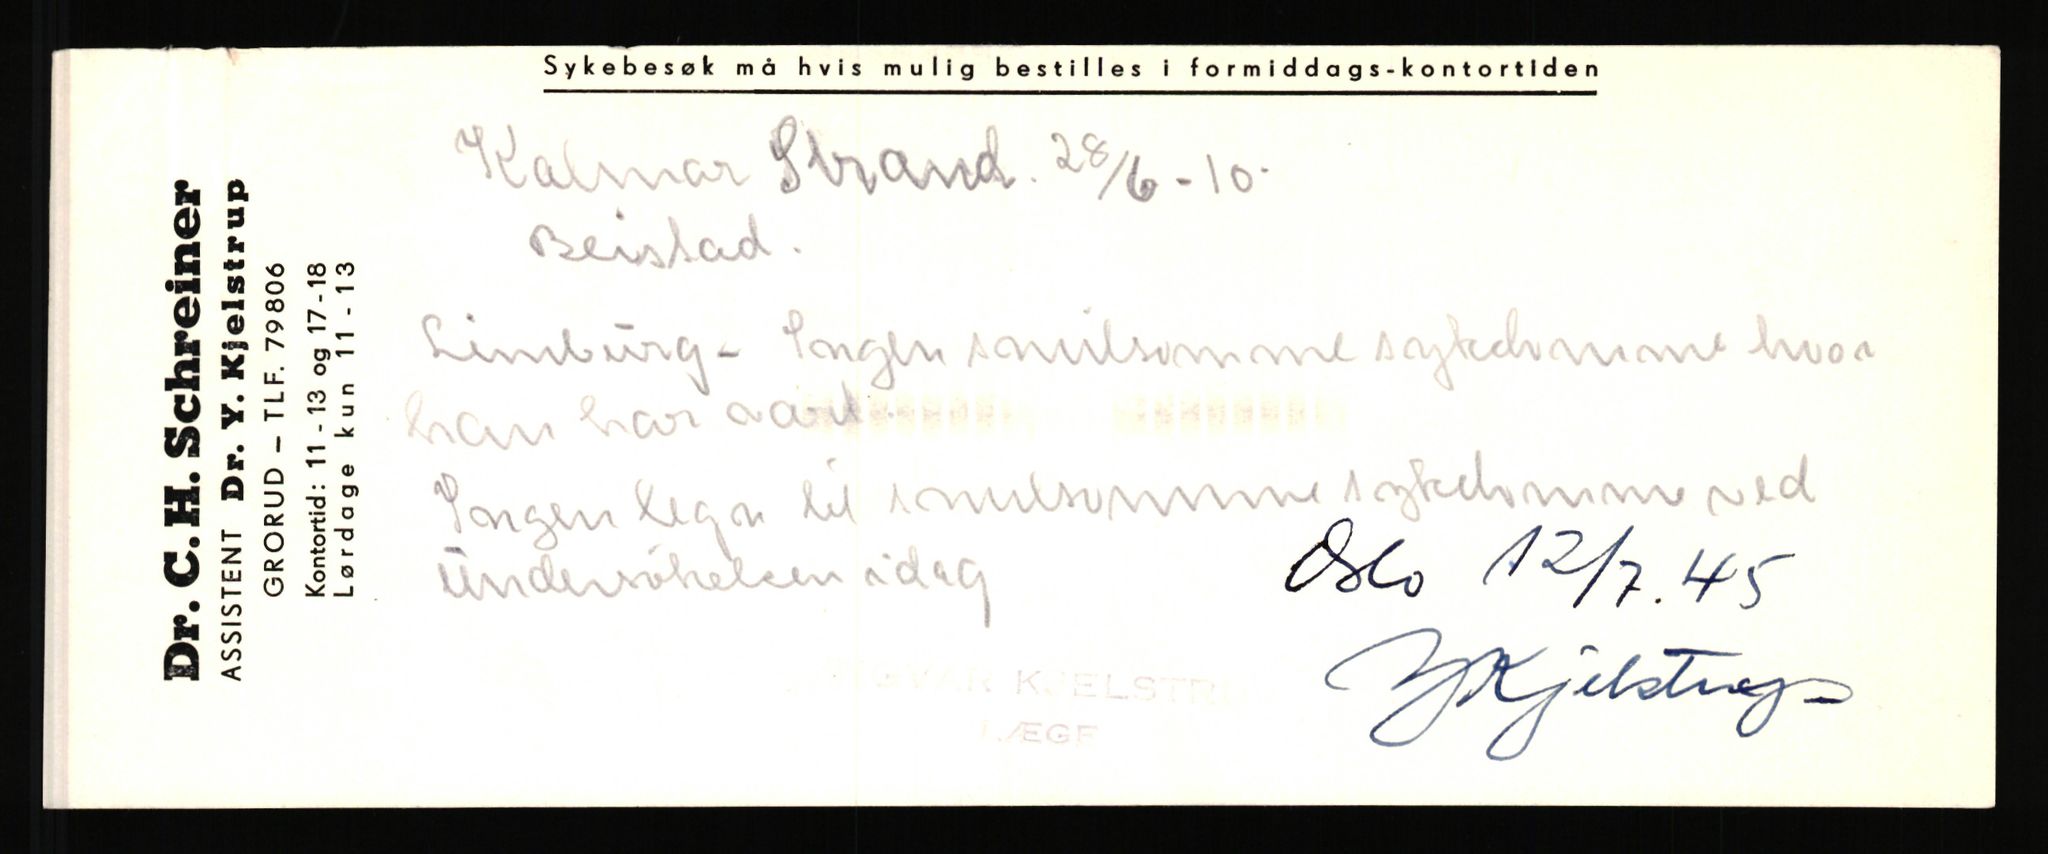 Sykebesøk må hvis mulig bestilles i formiddags-kontortiden
Dr. C. H. Schreiner
ASSISTENT Dr. Y. Kjelstrup
GRORUD – TLF. 79806
Kontortid: 11-13 og 17-18
Lørdage kun 11-13
Kalmar Strand. 28/6-10.
Beistad.
Limburg - Ingen smitsomme sykdomme hvor
han har vært.
Ingen tegn til smitsomme sykdomme ved
undersökelsen idag
Oslo 12/7.45
YKjelstrup
KJELSTRU
LÆGE